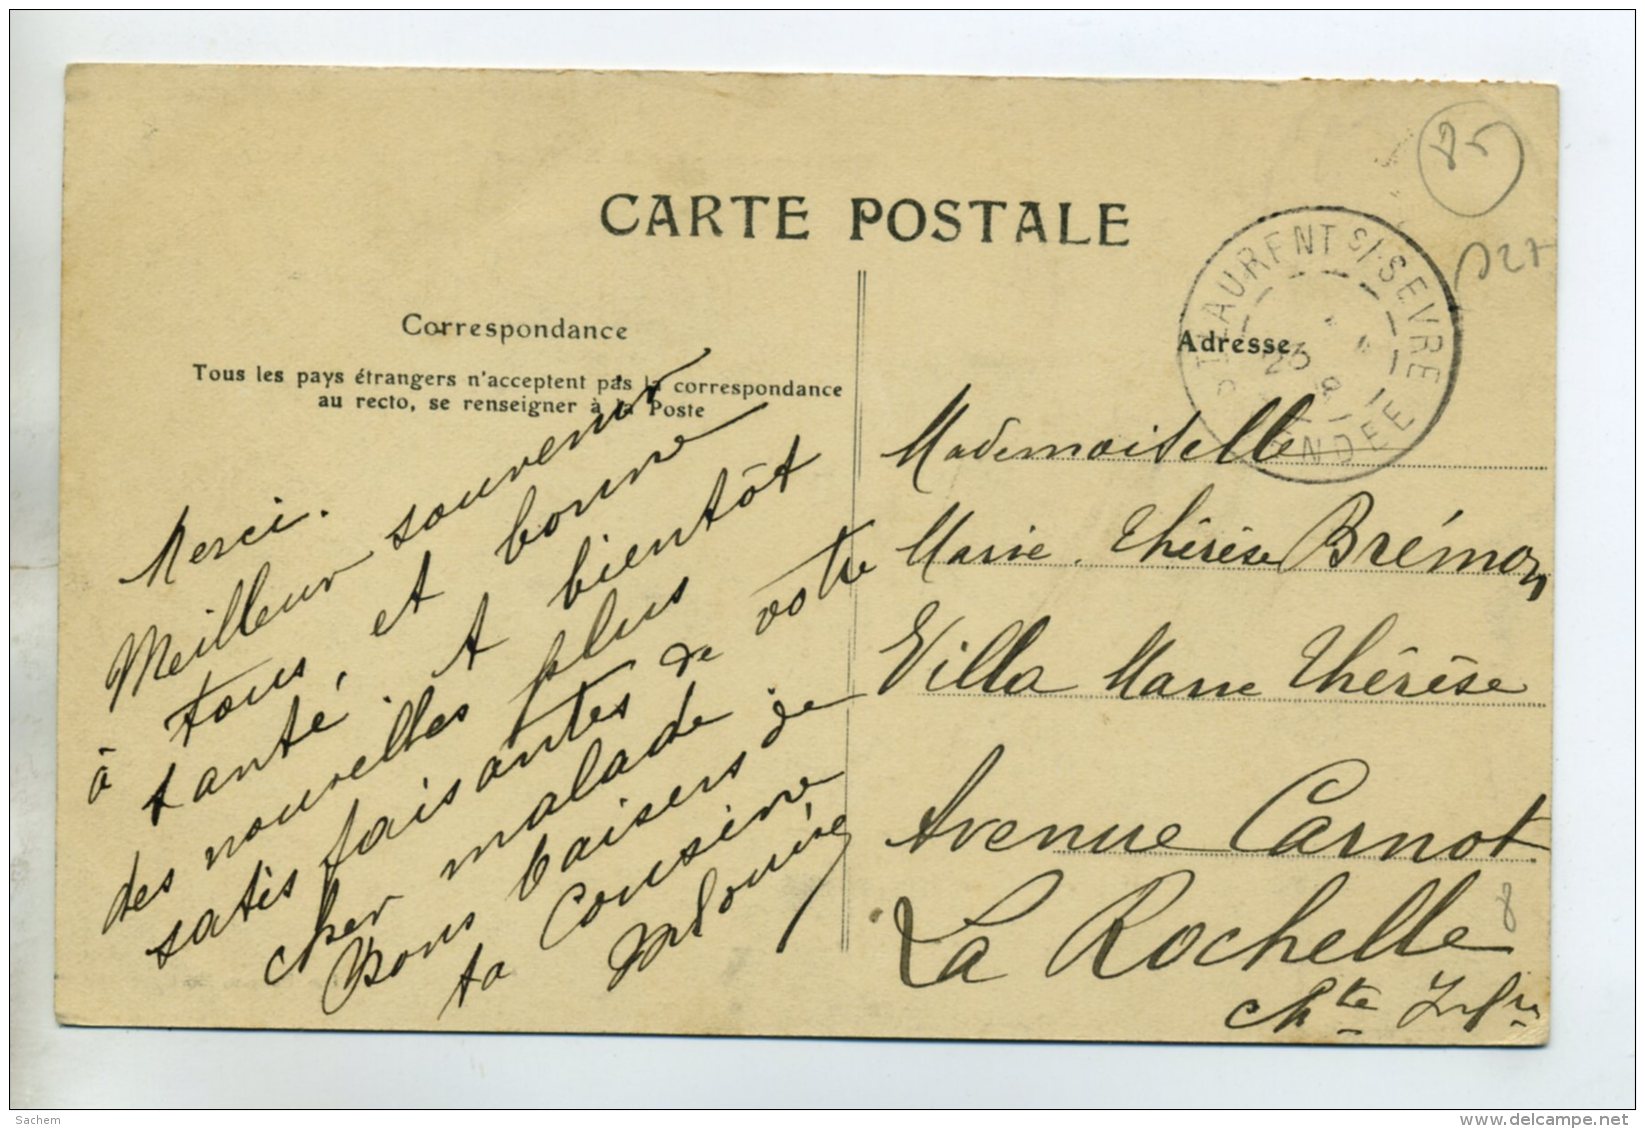 CARTE POSTALE
Correspondance
Tous les pays étrangers n'acceptent pas la correspondance
au recto, se renseigner à la Poste
Merci.
Meilleur souvenir
à tous, et bonne
santé. A bientôt
des nouvelles plus
satisfaisantes de votre
cher malade
Bons baisers de
ta Cousine
Adresse
ST LAURENT S/-SEVRE
VENDEE
Mademoiselle
Marie Thérèse Brémon
Villa Marie Thérèse
Avenue Carnot
La Rochelle
Chte Infre
85
8
Sachem
delcampe.net